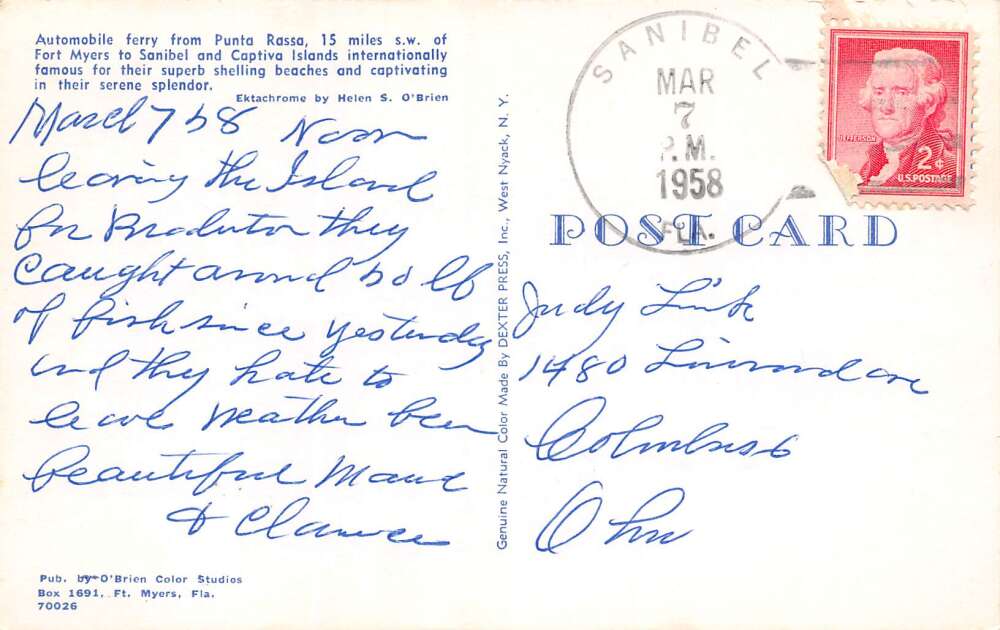 Automobile ferry from Punta Rassa, 15 miles s.w. of
Fort Myers to Sanibel and Captiva Islands internationally
famous for their superb shelling beaches and captivating
in their serene splendor.
Ektachrome by Helen S. O'Brien
March 7 58 Noon
leaving the Island
for Bradenton they
caught around 50 lb
of fish since yesterday
and they hate to
leave weather been
beautiful Maud
& Clarence
Pub. by O'Brien Color Studios
Box 1691, Ft. Myers, Fla.
70026
Genuine Natural Color Made By DEXTER PRESS, Inc., West Nyack, N. Y.
SANIBEL
MAR
7
P.M.
1958
FLA.
JEFFERSON
2¢
U.S. POSTAGE
POST CARD
Judy Link
1480 ave
Columbus 6
Ohio